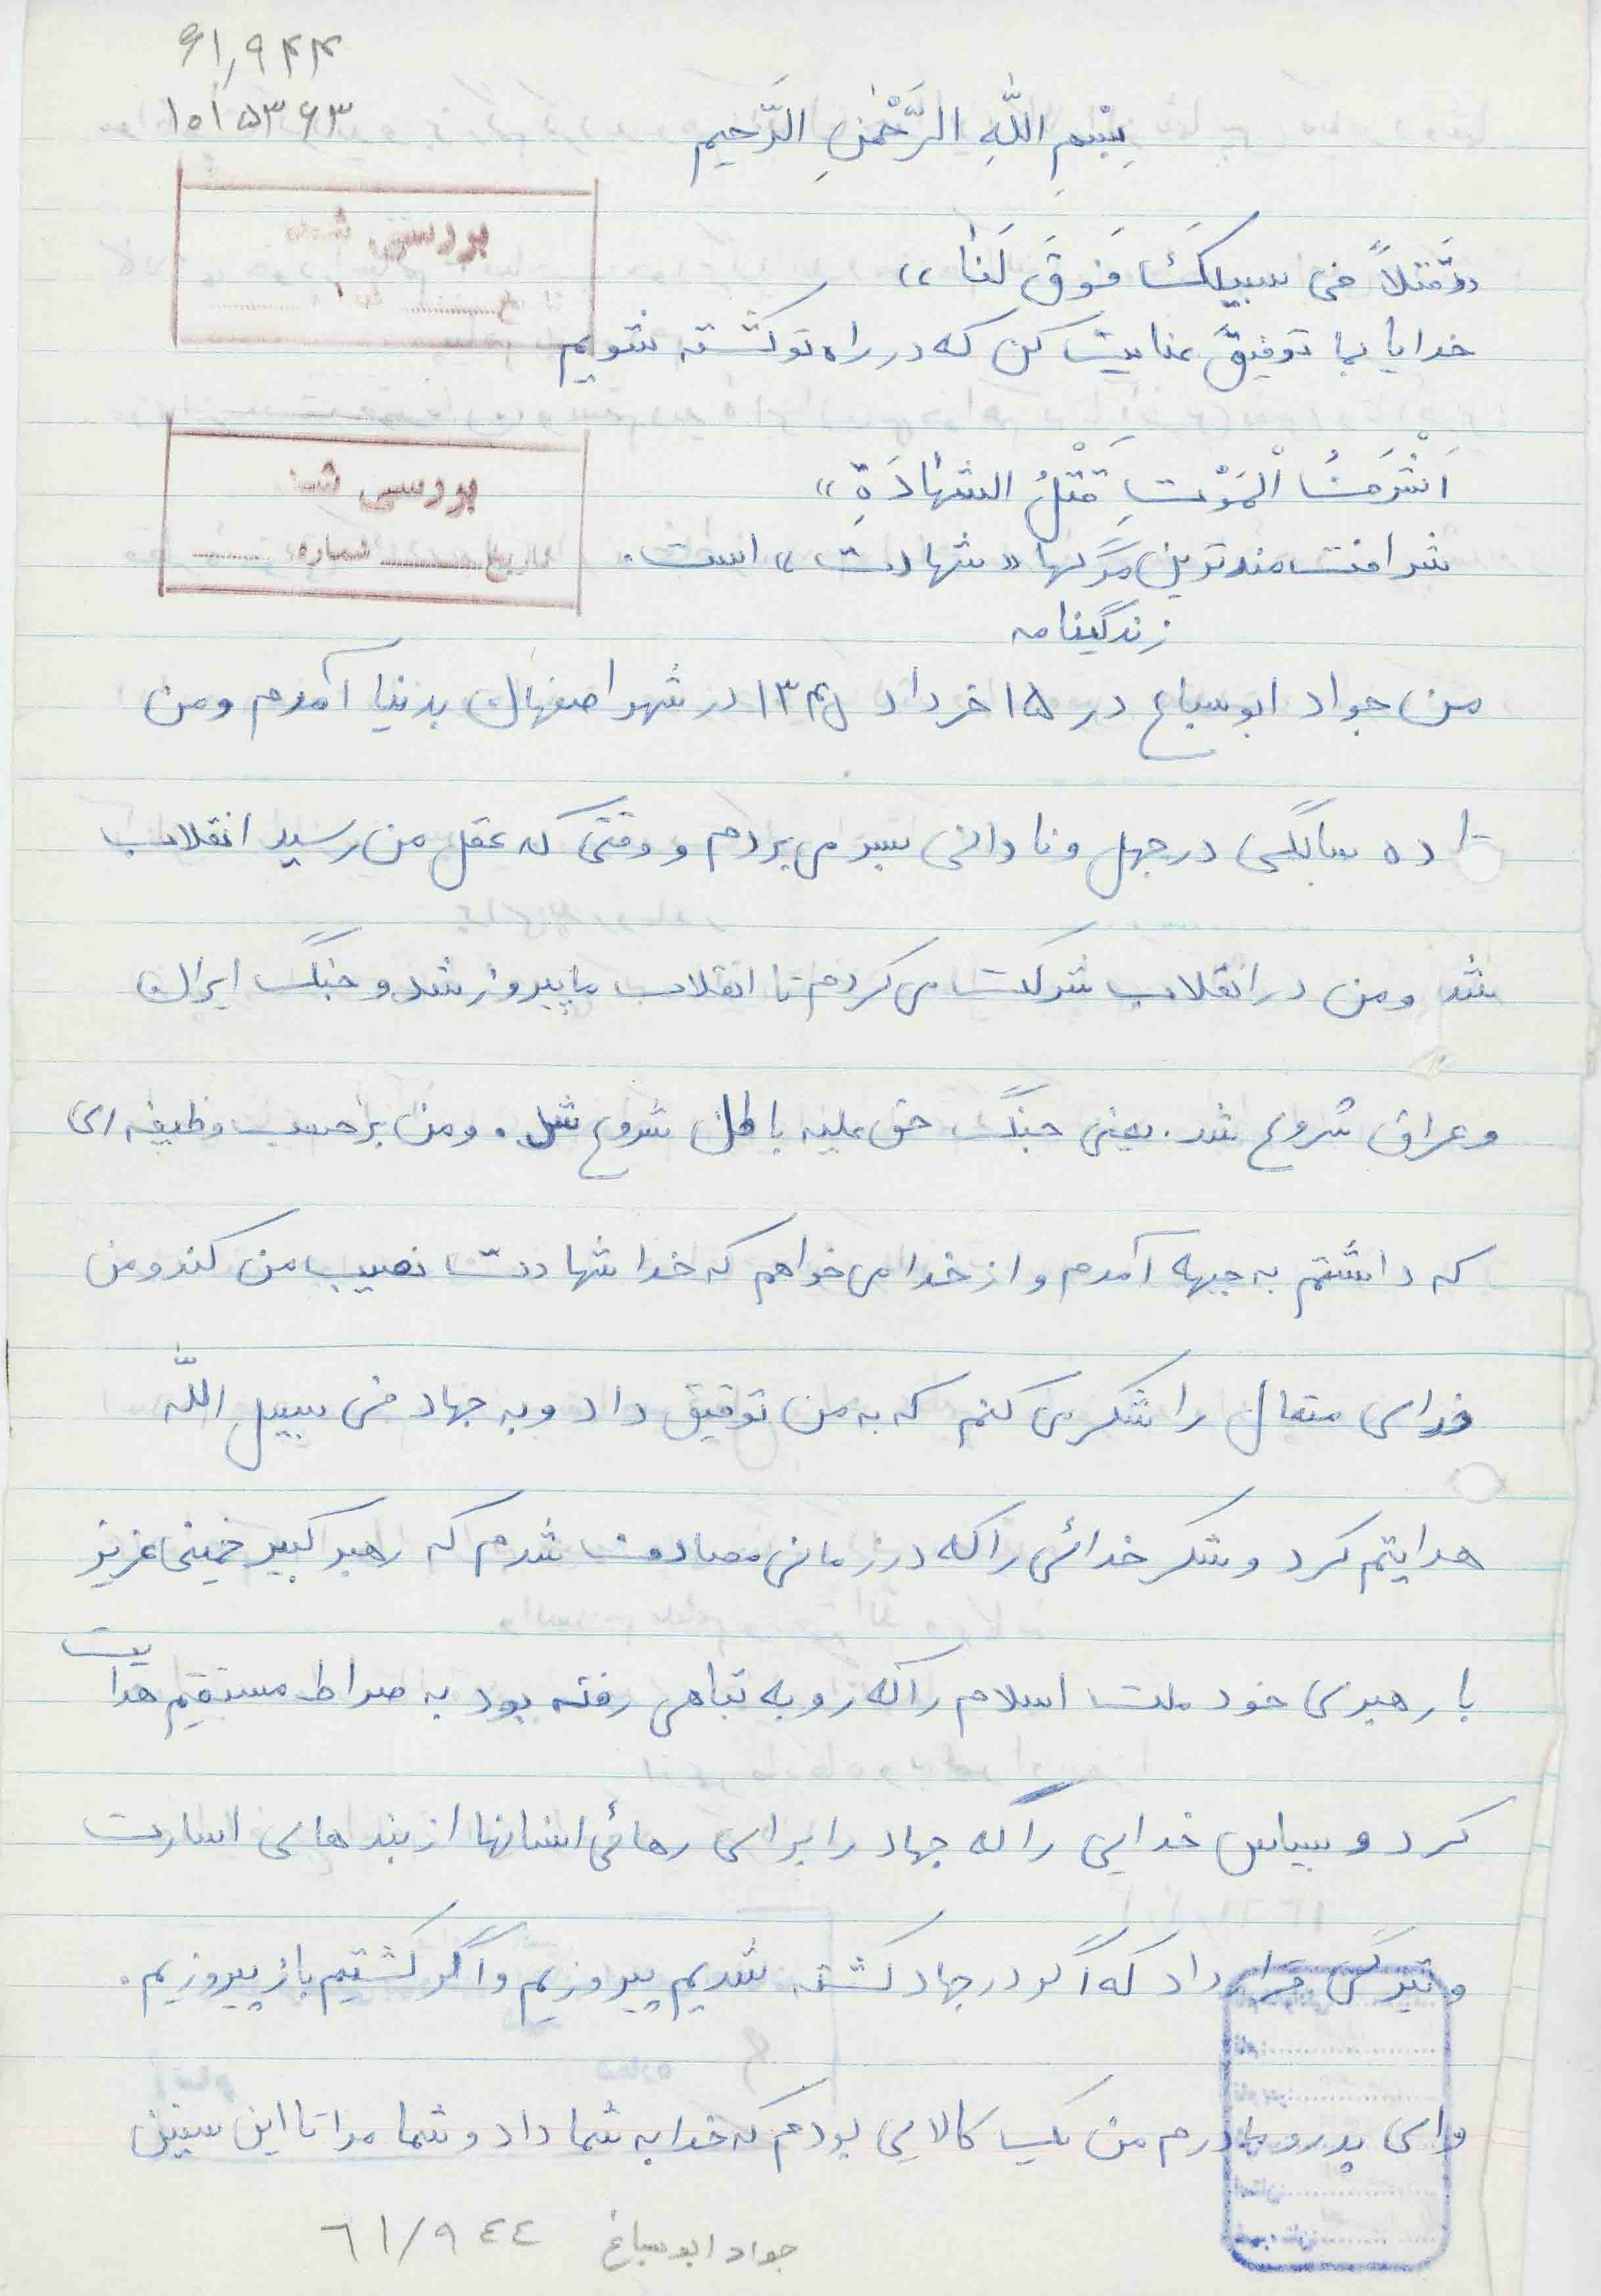 ۶۱٫۹۴۴
۱۰۱۵۳۶۳
بِسْمِ اللّهِ الرَّحْمٰنِ الرَّحیمِ
بررسی شد
«وَقتلاً فی سبیلِکَ فَوفَّق لَنا»
خدایا بما توفیق عنایت کن که در راه تو کشته شویم
بررسی شد
تاریخ ........ شماره ........
اَشْرَفُ الْمَوْتِ قَتْلُ الشَهادَةِ»
شرافت مندترین مرگها «شهادت» است.
زندگینامه
من جواد ابوسباع در ۱۵ خرداد ۱۳۴۵ در شهر اصفهان بدنیا آمدم و من
تا ده سالگی در جهل و نادانی بسر می بردم و وقتی که عقل من رسید انقلاب
شد و من در انقلاب شرکت می کردم تا انقلاب ما پیروز شد و جنگ ایران
و عراق شروع شد. یعنی جنگ حق علیه باطل شروع شد. و من بر حسب وظیفه ای
که داشتم به جبهه آمدم و از خدا می خواهم که خدا شهادت نصیب من کند و من
خدای متعال را شکر می کنم که به من توفیق داد و به جهاد فی سبیل اللّه
هدایتم کرد و شکر خدائی را که در زمانی مصادف شدم که رهبر کبیر خمینی عزیز
با رهبری خود ملت اسلام را که رو به تباهی رفته بود به صراط مستقیم هدایت
کرد و سپاس خدایی را که جهاد را برای رهائی انسانها از بندهای اسارت
و تیرگی قرار داد که اگر در جهاد کشته شدیم پیروزیم و اگر کشتیم باز پیروزیم.
و ای پدر و مادرم من یک کالایی بودم که خدا به شما داد و شما مرا تا این سنین
جواد ابوسباع ٦١/٩٤٤